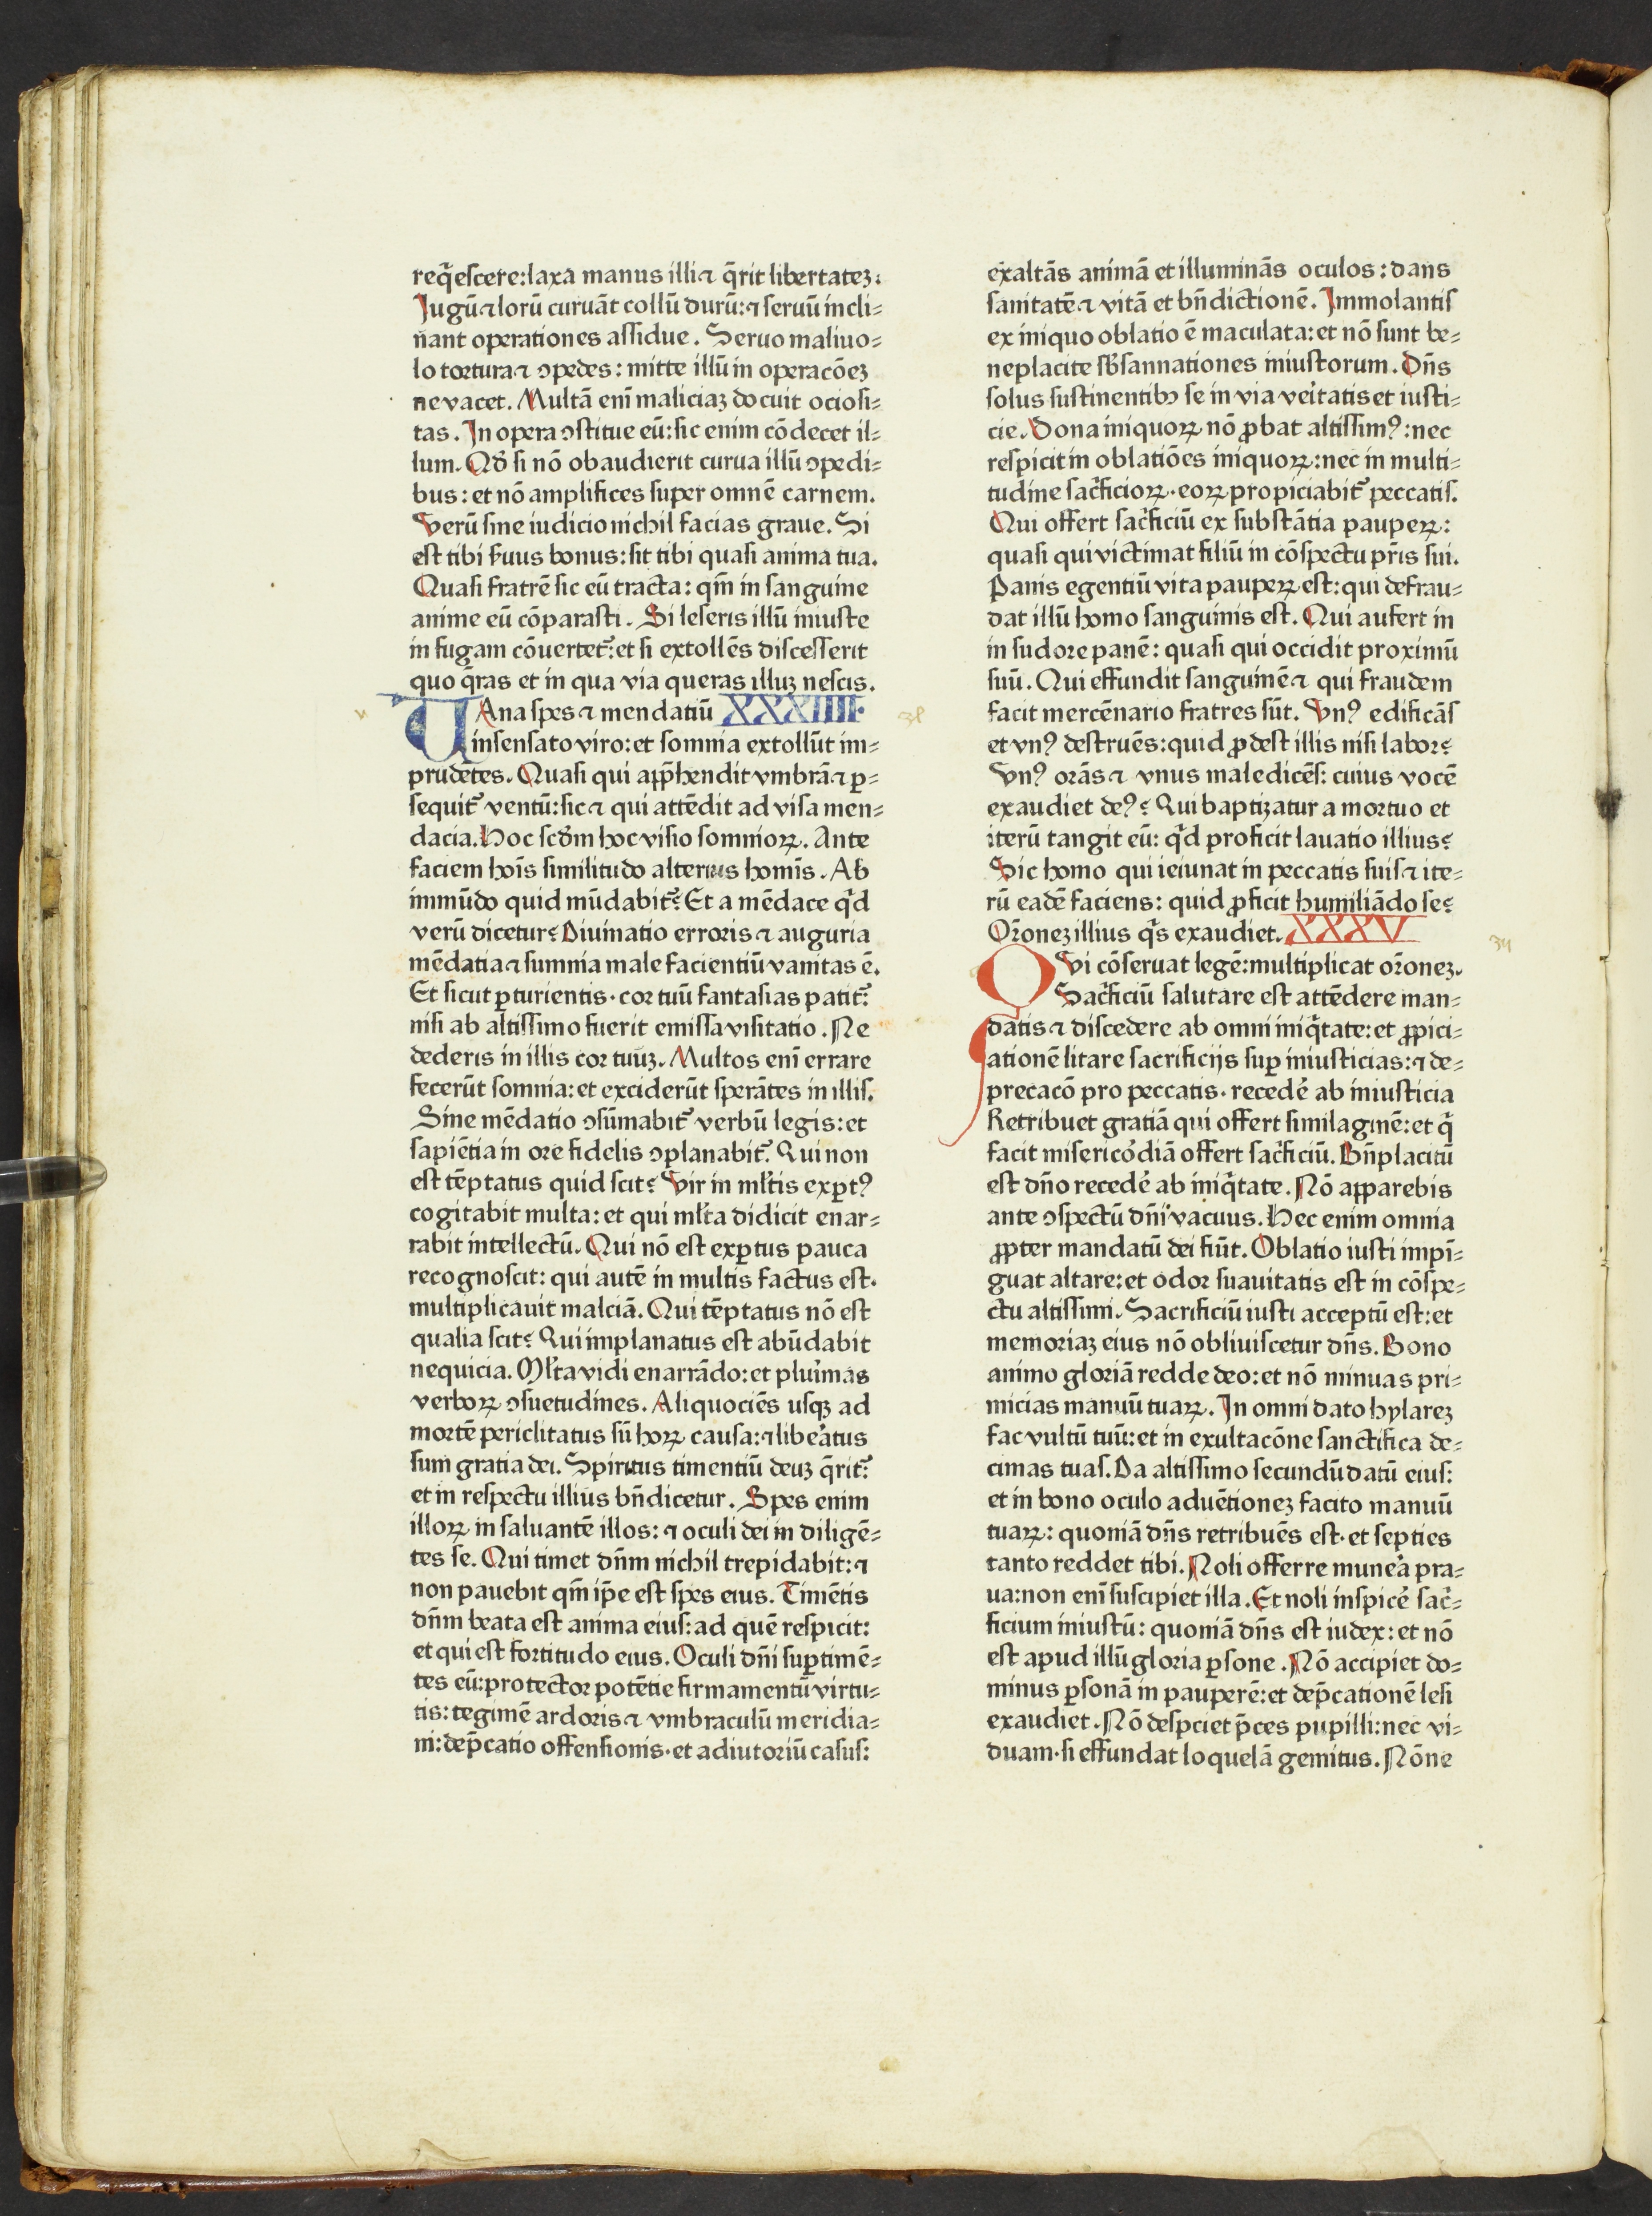 req̃escere: laxa manus illi ⁊ q̃rit libertateꝫ.
Jugũ ⁊ lorũ curuãt collũ durũ: ⁊ seruũ incli⸗
nant operationes assidue. Seruo maliuo⸗
lo tortura ⁊ ꝯpedes: mitte illũ in operacõeꝫ
ne vacet. Multã eni᷑ maliciaꝫ docuit ociosi⸗
tas. In opera ꝯstitue eũ: sic enim cõdecet il⸗
lum. Qd᷑ si nõ obaudierit curua illũ ꝯpedi⸗
bus: et nõ amplifices super omnẽ carnem.
Verũ sine iudicio nichil facias graue. Si
est tibi s᷑uus bonus: sit tibi quasi anima tua.
Quasi fratrẽ sic eũ tracta: qm̃ in sanguine
anime eũ cõparasti. Si leseris illũ iniuste
in fugam cõuertet᷑: et si extollẽs discesserit
quo q̃ras et in qua via queras illuꝫ nescis.
VAna spes ⁊ mendatiũ XXXIIII.
insensato viro: et somnia extollũt im⸗
prudẽtes. Quasi qui app̃hendit vmbrã ⁊ ꝑ⸗
sequit᷑ ventũ: sic ⁊ qui attẽdit ad visa men⸗
dacia. Hoc scd᷑m hoc visio somnioꝝ. Ante
faciem hoĩs similitudo alterius homĩs. Ab
immũdo quid mũdabit᷑? Et a mẽdace q̃d
verũ dicetur? Diuinatio erroris ⁊ auguria
mẽdatia ⁊ sumnia male facientiũ vanitas ẽ.
Et sicut ꝑturientis. cor tuũ fantasias patit᷑:
nisi ab altissimo fuerit emissa visitatio. Ne
dederis in illis cor tuuꝫ. Multos eni᷑ errare
fecerũt somnia: et exciderũt sperãtes in illis.
Sine mẽdatio ꝯsũmabit᷑ verbũ legis: et
sapiẽtia in ore fidelis ꝯplanabit᷑. Qui non
est tẽptatus quid scit? Vir in ml᷑tis exꝑtꝰ
cogitabit multa: et qui ml᷑ta didicit enar⸗
rabit intellectũ. Qui nõ est exꝑtus pauca
recognoscit: qui autẽ in multis factus est.
multiplicauit malciã. Qui tẽptatus nõ est
qualia scit? Qui implanatus est abũdabit
nequicia. Ml᷑ta vidi enarrãdo: et plui᷑mas
verboꝝ ꝯsuetudines. Aliquociẽs usqꝫ ad
mortẽ periclitatus sũ hoꝝ causa: ⁊ libe᷑atus
sum gratia dei. Spiritus timentiũ deuꝫ q̃rit᷑:
et in respectu illius bñdicetur. Spes enim
illoꝝ in saluantẽ illos: ⁊ oculi dei in diligẽ⸗
tes se. Qui timet dñm nichil trepidabit: ⁊
non pauebit qm̃ ip̃e est spes eius. Timẽtis
dñm beata est anima eius: ad quẽ respicit:
et qui est fortitudo eius. Oculi dñi suꝑ timẽ⸗
tes eũ: protector potẽtie firmamentũ virtu⸗
tis: tegimẽ ardoris ⁊ vmbraculũ meridia⸗
ni: dep̃catio offensionis. et adiutoriũ casus:
exaltãs animã et illuminãs oculos: dans
sanitatẽ ⁊ vitã et bñdictionẽ. Immolantis
ex iniquo oblatio ẽ maculata: et nõ sunt be⸗
neplacite sb᷑sannationes iniustorum. Dñs
solus sustinentibꝫ se in via vei᷑tatis et iusti⸗
cie. Dona iniquoꝝ nõ ꝓbat altissimꝰ: nec
respicit in oblatiões iniquoꝝ: nec in multi⸗
tudine sac᷑ficioꝝ. eoꝝ propiciabit᷑ peccatis.
Qui offert sac᷑ficiũ ex substãtia pauꝑeꝝ:
quasi qui victimat filiũ in cõspectu pr̃is sui.
Panis egentiũ vita paupeꝝ est: qui defrau⸗
dat illũ homo sanguinis est. Qui aufert in
in sudore panẽ: quasi qui occidit proximũ
suũ. Qui effundit sanguinẽ ⁊ qui fraudem
facit mercẽnario fratres sũt. Vnꝰ edificãs
et vnꝰ destruẽs: quid ꝓdest illis nisi labor?
Vnꝰ orãs ⁊ vnus maledicẽs: cuius vocẽ
exaudiet deꝰ? Qui baptizatur a mortuo et
iterũ tangit eũ: q̃d proficit lauatio illius?
Sic homo qui ieiunat in peccatis suis ⁊ ite⸗
rũ eadẽ faciens: quid ꝓficit humiliãdo se?
Or̃oneꝫ illius q̃s exaudiet. XXXV
QVi cõseruat legẽ: multiplicat or̃oneꝫ.
Sac᷑ficiũ salutare est attẽdere man⸗
datis ⁊ discedere ab omni iniq̃tate: et ꝓpici⸗
ationẽ litare sacrificijs suꝑ iniusticias: ⁊ de⸗
precacõ pro peccatis. recede᷑ ab iniusticia
Retribuet gratiã qui offert similaginẽ: et q̃
facit miserico᷑diã offert sac᷑ficiũ. Bñplacitũ
est dño recede᷑ ab iniq̃tate. Nõ apparebis
ante ꝯspectũ dñi vacuus. Hec enim omnia
ꝓpter mandatũ dei fiũt. Oblatio iusti impĩ⸗
guat altare: et odor suauitatis est in cõspe⸗
ctu altissimi. Sacrificiũ iusti acceptũ est: et
memoriaꝫ eius nõ obliuiscetur dñs. Bono
animo gloriã redde deo: et nõ minuas pri⸗
micias manuũ tuaꝝ. In omni dato hylareꝫ
fac vultũ tuũ: et in exultacõne sanctifica de⸗
cimas tuas. Da altissimo secundũ datũ eius:
et in bono oculo aduẽtioneꝫ facito manuũ
tuaꝝ: quoniã dñs retribuẽs est. et septies
tanto reddet tibi. Noli offerre mune᷑a pra⸗
ua: non eni᷑ suscipiet illa. Et noli inspice᷑ sac᷑⸗
ficium iniustũ: quoniã dñs est iudex: et nõ
est apud illũ gloria ꝑsone. Nõ accipiet do⸗
minus ꝑsonã in pauperẽ: et dep̃cationẽ lesi
exaudiet. Nõ despciet p̃ces pupilli: nec vi⸗
duam. si effundat loquelã gemitus. Nõne